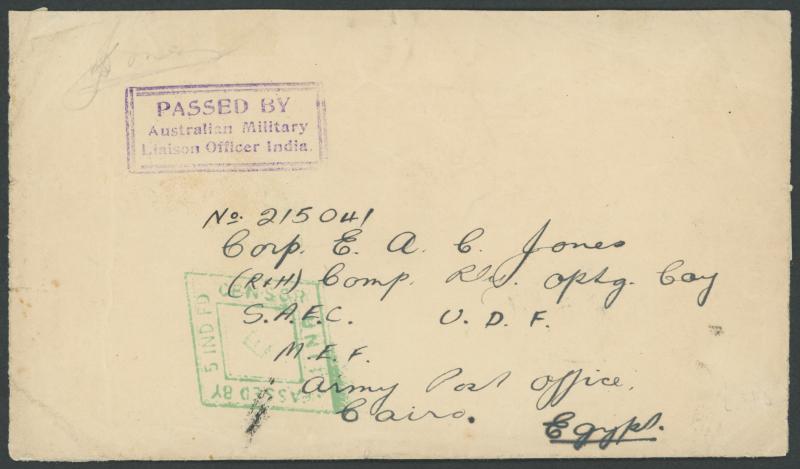 Jones
PASSED BY
Australian Military
Liaison Officer India.
No. 215041
Corp. E. A. C. Jones
(R+H) Comp. Rly. optg. Coy
S.A.E.C. U.D.F.
M.E.F.
Army Post Office.
Cairo.
Egypt.
CENSOR
5 IND FD
PASSED BY